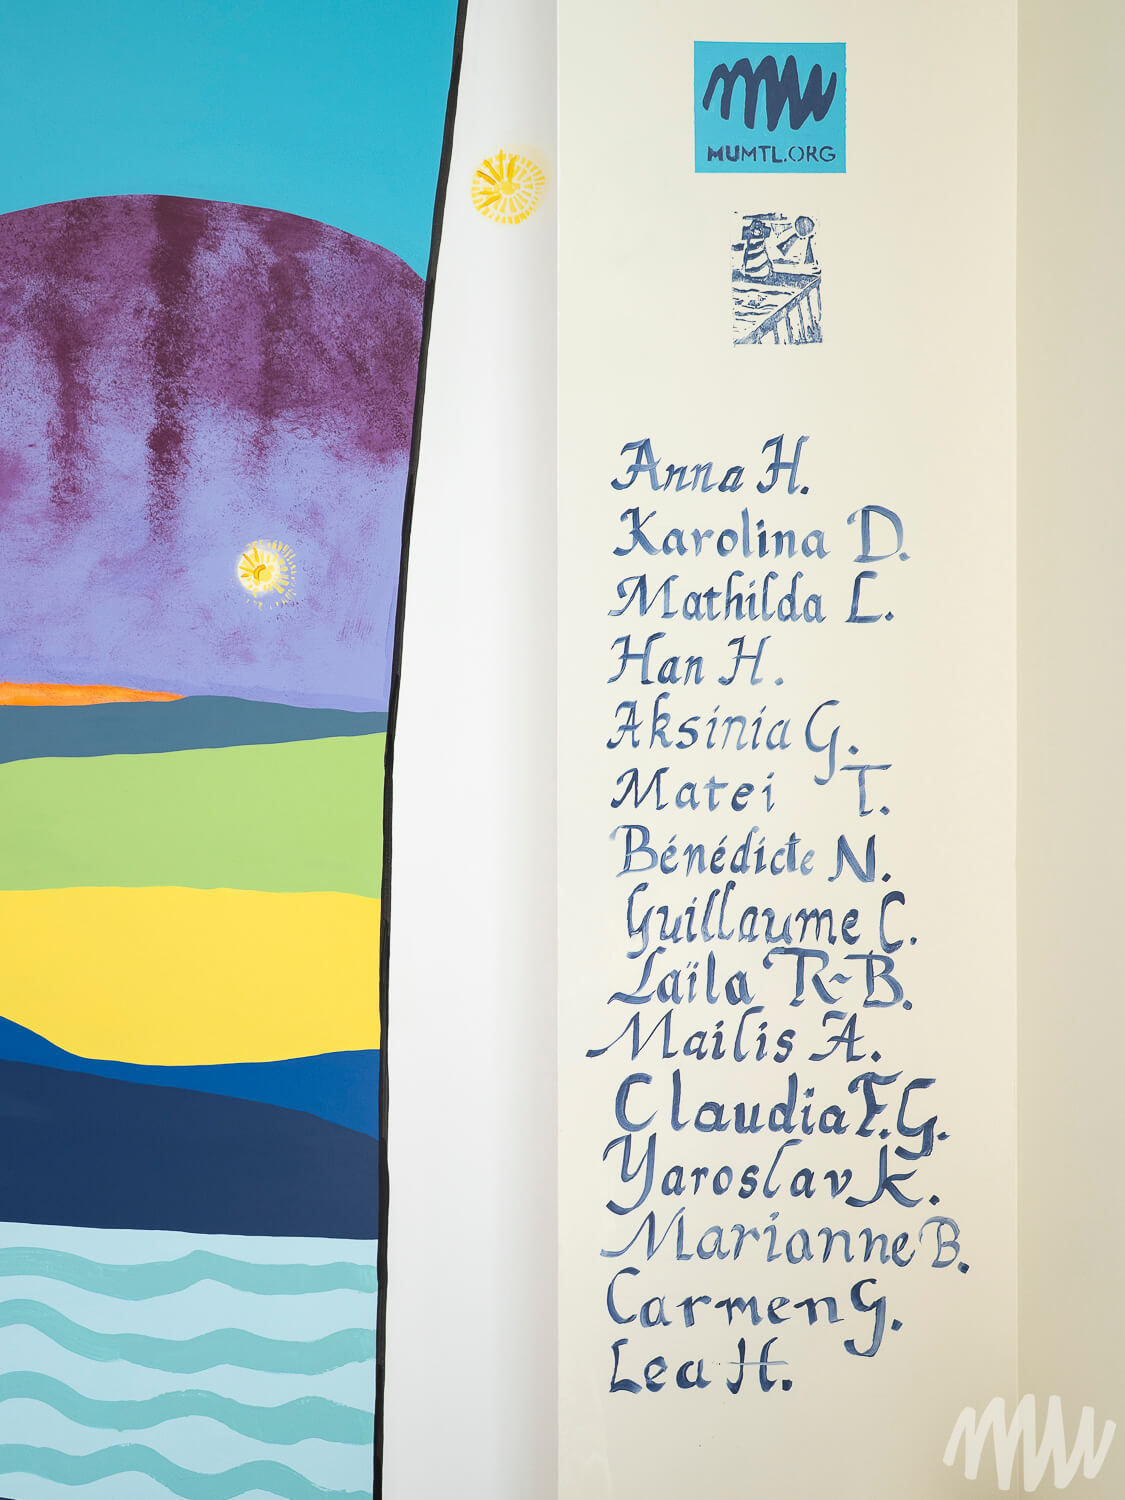 MU
MUMTL.ORG
Anna H.
Karolina D.
Mathilda L.
Han H.
Aksinia G.
Matei T.
Bénédicte N.
Guillaume C.
Laïla R-B.
Mailis A.
Claudia F.G.
Yaroslav K.
Marianne B.
Carmen G.
Lea H.
MU